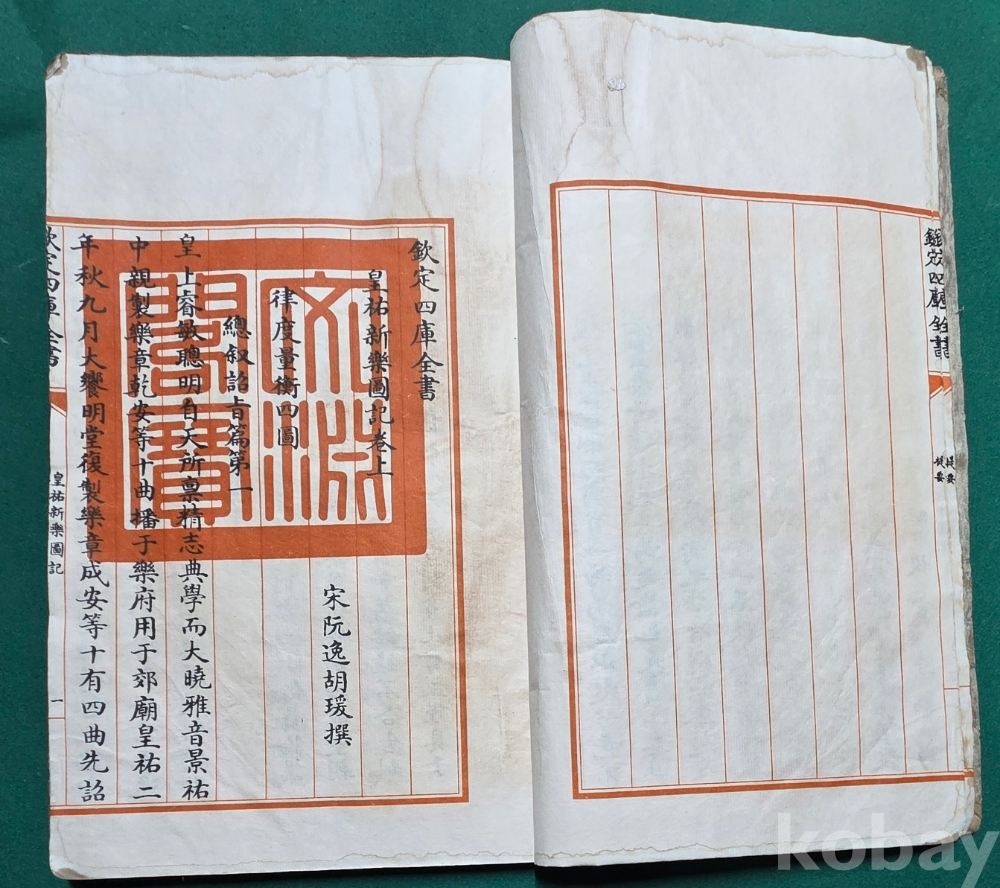 欽定四庫全書
提要
欽定四庫全書
皇祐新樂圖記卷上
宋阮逸胡瑗撰
律度量衡四圖
總叙詔旨篇第一
皇上睿敏聰明自天所禀精志典學而大曉雅音景祐
中親製樂章乾安等十曲播于樂府用于郊廟皇祐二
年秋九月大饗明堂復製樂章成安等十有四曲先詔
欽定四庫全書
皇祐新樂圖記
一
文淵
閣寶
kobay